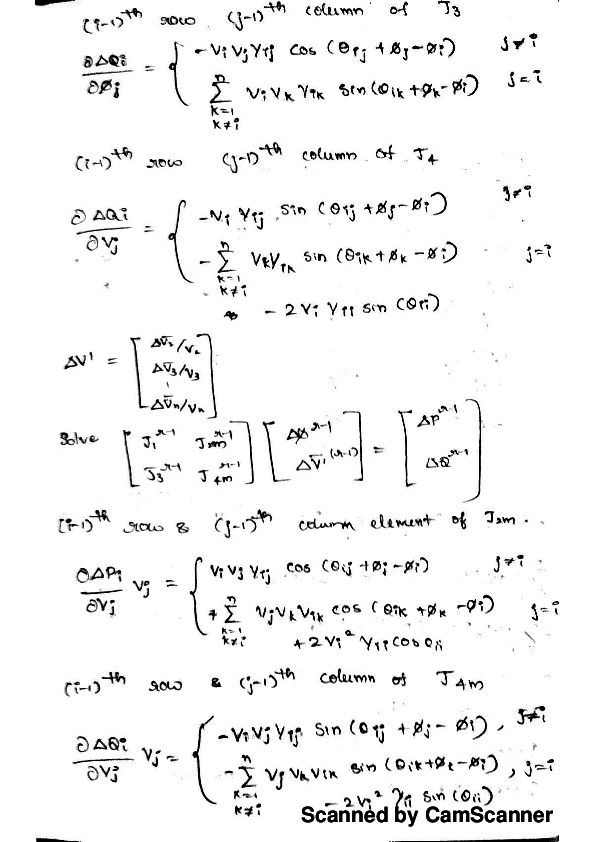 (i-1)th row (j-1)th column of J3
∂ΔQi/∂Øj = { -Vi Vj Yij cos (θij + Øj - Øi) j≠i
Σ(k=1, k≠i)^n Vi Vk Yik sin (θik + Øk - Øi) j=i
(i-1)th row (j-1)th column of J4
∂ΔQi/∂Vj = { -Vi Yij sin (θij + Øj - Øi) j≠i
- Σ(k=1, k≠i)^n Vk Yik sin (θik + Øk - Øi) j=i
- 2 Vi Yii sin (θii)
ΔV' = [ ΔV2/V2
ΔV3/V3
ΔVn/Vn ]
Solve [ J1^r-1 J2m^r-1
J3^r-1 J4m^r-1 ] [ ΔØ^r-1
ΔV'^(r-1) ] = [ ΔP^r-1
ΔQ^r-1 ]
(i-1)th row & (j-1)th column element of J2m.
∂ΔPi/∂Vj Vj = { Vi Vj Yij cos (θij + Øj - Øi) j≠i
+ Σ(k=1, k≠i)^n Vj Vk Yik cos (θik + Øk - Øi) j=i
+ 2 Vi² Yii cos θii
(i-1)th row & (j-1)th column of J4m
∂ΔQi/∂Vj Vj = { -Vi Vj Yij sin (θij + Øj - Øi), j≠i
- Σ(k=1, k≠i)^n Vj Vk Yik sin (θik + Øk - Øi), j=i
- 2 Vi² Yii sin (θii)
Scanned by CamScanner